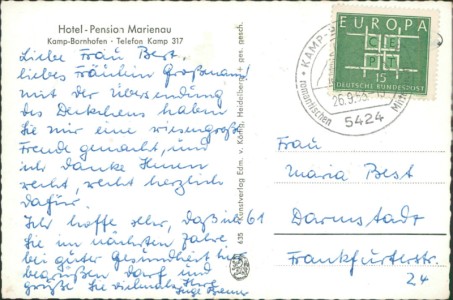 Hotel-Pension Marienau
Kamp-Bornhofen · Telefon Kamp 317
Liebe Frau Best,
liebes Fräulein Großmann!
Mit der Übersendung
des Deckchens haben
Sie mir eine riesengroße
Freude gemacht, und
ich danke Ihnen
recht, recht herzlich
dafür.
Ich hoffe sehr, daß ich
Sie im nächsten Jahre
bei guter Gesundheit hier
begrüßen darf und
grüße Sie vielmals Ihre
Inge
61
635 Kunstverlag Edm. v. König, Heidelberg ges. gesch.
EUROPA
CEPT
15
DEUTSCHE BUNDESPOST
KAMP-
26.9.63
romantischen
5424
Frau
Maria Best
Darmstadt
Frankfurterstr.
24